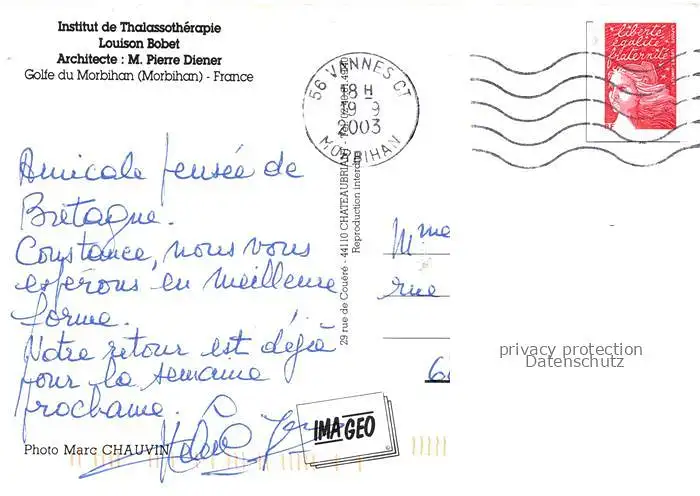 Institut de Thalassothérapie
Louison Bobet
Architecte : M. Pierre Diener
Golfe du Morbihan (Morbihan) - France
56 VANNES CT
18 H
9
2003
MORBIHAN
liberté
égalité
fraternité
Amicale pensée de
Bretagne.
Constance, nous vous
espérons en meilleure
forme.
Notre retour est déjà
pour la semaine
prochaine.
Photo Marc CHAUVIN
29 rue de Couéré - 44110 CHATEAUBRIANT
Reproduction interdite
Mme
rue
IMAGEO
privacy protection
Datenschutz